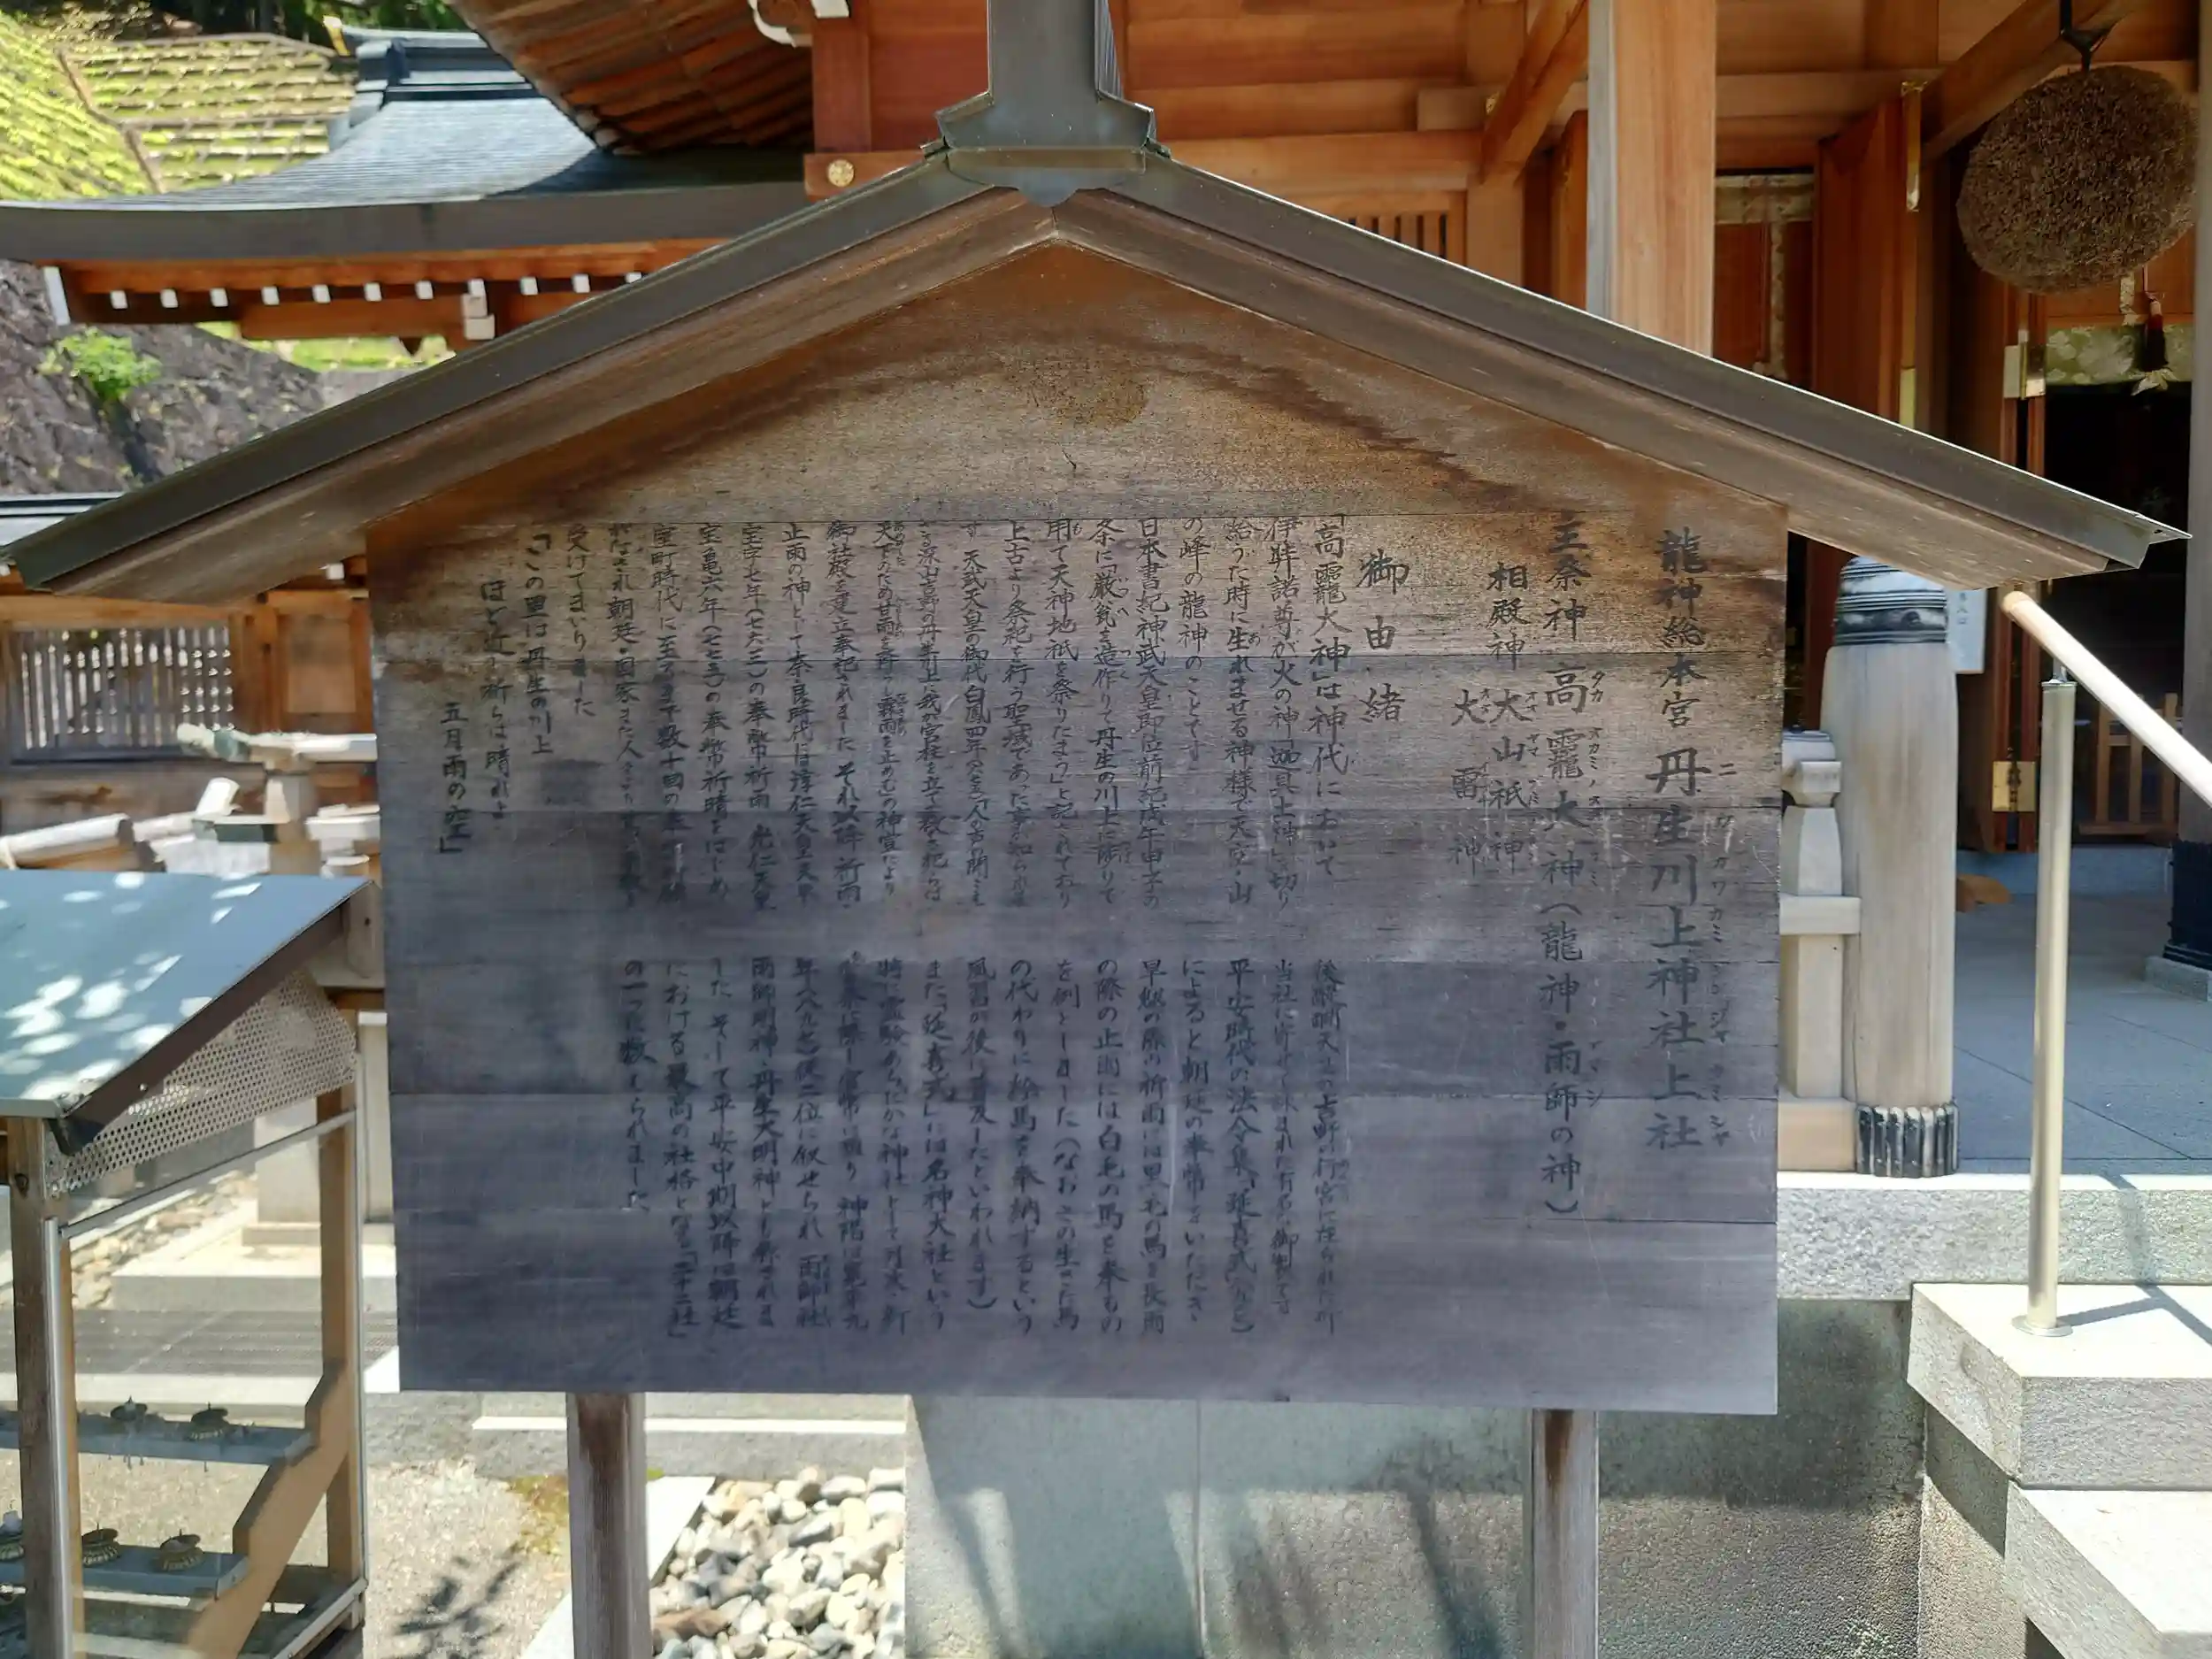 龍神総本宮 丹生川上神社上社
ニ ウ カワ カミ ジン ジャ カミ シャ
主祭神 高龗大神（龍神・雨師の神）
タカ オカミノオオ カミ
相殿神 大山祇神
オオ ヤマ
大雷神
御由緒
「高龗大神」は神代において
伊弉諾尊が火の神
給うた時に生れませる神様で天空・山
の峰の龍神のことです
日本書紀神武天皇即位前紀戊午
条に「厳瓮を造作りて丹生の川上に陟りて
用て天神地祇を祭りたまう」と記されており
上古より祭祀を行う聖域であった事が知られま
す 天武天皇の御代白鳳四年
深山吉野の丹生川上に我が宮柱を立て敬
天下のため甘雨を降らし霖雨を止めむ」の神宣により
御社殿を建立奉祀されました それ以降祈雨・
止雨の神として奈良時代には淳仁天皇天平
宝字七年（七六三）の奉幣祈雨 光仁天皇
宝亀六年（七七五）の奉幣祈晴をはじめ
室町時代に至るまで数十回の
がなされ朝廷・国家また人々より
受けてまいりました
「この里は丹生の川上
ほど近し祈らば晴れよ
五月雨の空」
後醍醐天皇の吉野の行宮に在られた折
当社に寄せて詠まれた有名な御製です
平安時代の法令集「延喜式」など
によると朝廷の奉幣をいただき
旱魃の際の祈雨には黒毛の馬を長雨
の際の止雨には白毛の馬を奉るの
を例としました（なおこの生きた馬
の代わりに絵馬を奉納するという
風習が後に普及したといわれます）
また「延喜式」には名神大社という
特に霊験あらたかな神社として月次・新
嘗祭に際し官幣に預り 神階は寛平九
年（八九七）従二位に叙せられ 雨師社
雨師明神・丹生大明神とも称されま
した そして平安中期以降は朝廷
における最高の社格となる「二十二社」
の一つに数えられました